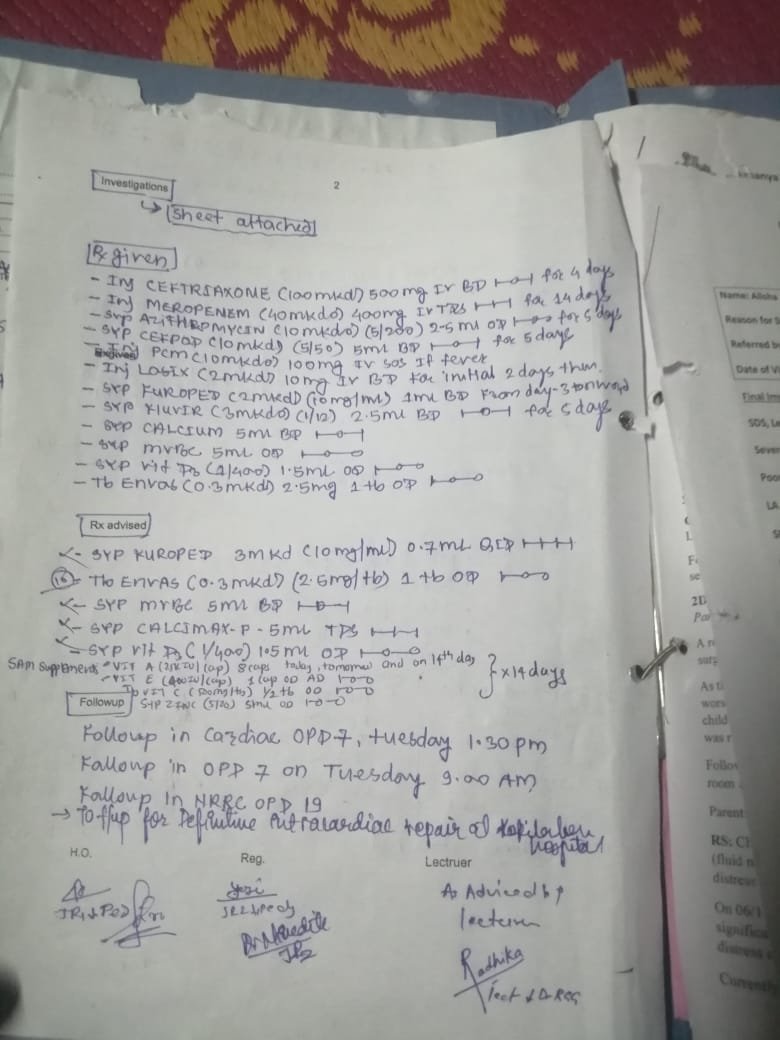 2
Investigations
↳ Sheet attached
Rx given
- Inj CEFTRIAXONE (100mkd) 500mg IV BD for 4 days
- Inj MEROPENEM (40mkdo) 400mg IV TDS for 14 days
- SYP AZITHROMYCIN (10mkdo) (5/200) 2.5 ml OD for 5 days
- SYP CEFPOD (10mkd) (5/50) 5ml BD for 5 days
- Inj PCM (10mkdo) 100mg IV SOS If fever
- Inj LASIX (2mkd) 10mg IV BD for initial 2 days then
- SYP FUROPED (2mkd) (10mg/ml) 1ml BD From day-3 onward
- SYP FLUVIR (3mkdo) (1/12) 2.5ml BD for 5 days
- SYP CALCIUM 5ml BD
- SYP MVBC 5ml OD
- SYP Vit D3 (1/400) 1.5ml OD
- Tb Envas (0.3mkd) 2.5mg 1 tb OD
Rx advised
- SYP FUROPED 3mkd (10mg/ml) 0.7ml QID
- Tb EnvAs (0.3mkd) (2.5mg/tb) 1 tb OD
- SYP MVBC 5ml
- SYP CALCIMAX-P - 5ml TDS
- SYP Vit D3 (1/400) 1.5ml OD
SAM Supplements - VIT A (25KIU/cap) 8 caps today, tomorrow and on 14th day
- VIT E (400IU/cap) 1 cap OD AD
Tb VIT C (500mg/tb) 1/2 tb OD
SYP ZINC (5/20) 5ml OD
x 14 days
Followup
Followup in Cardiac OPD-7, tuesday 1.30pm
Followup in OPD 7 on Tuesday 9.00 AM
Followup In NRRC OPD 19
→ To f/up for Definitive Intracardiac repair at Kokilaben
hospital
H.O.
Reg.
Lectruer
As Adviced by
lecturer
Radhika
Name:
Reason for
Referred b
Date of Vi
SDS, L
Sever
Poo
LA
2D
Par
A r
surg
As t
wors
child
was r
Follov
room
Parent
RS: C
(fluid n
distress
On 06/1
significa
distress
Currently